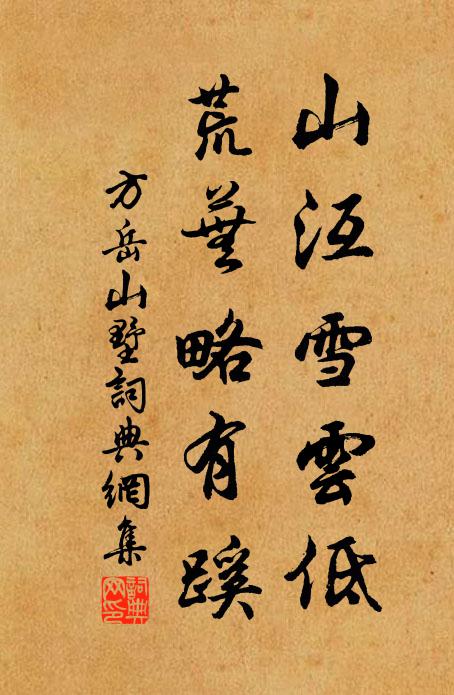 山沍雪雲低
荒蕪略有蹊
方岳山墅詞典網集
詞典
网印